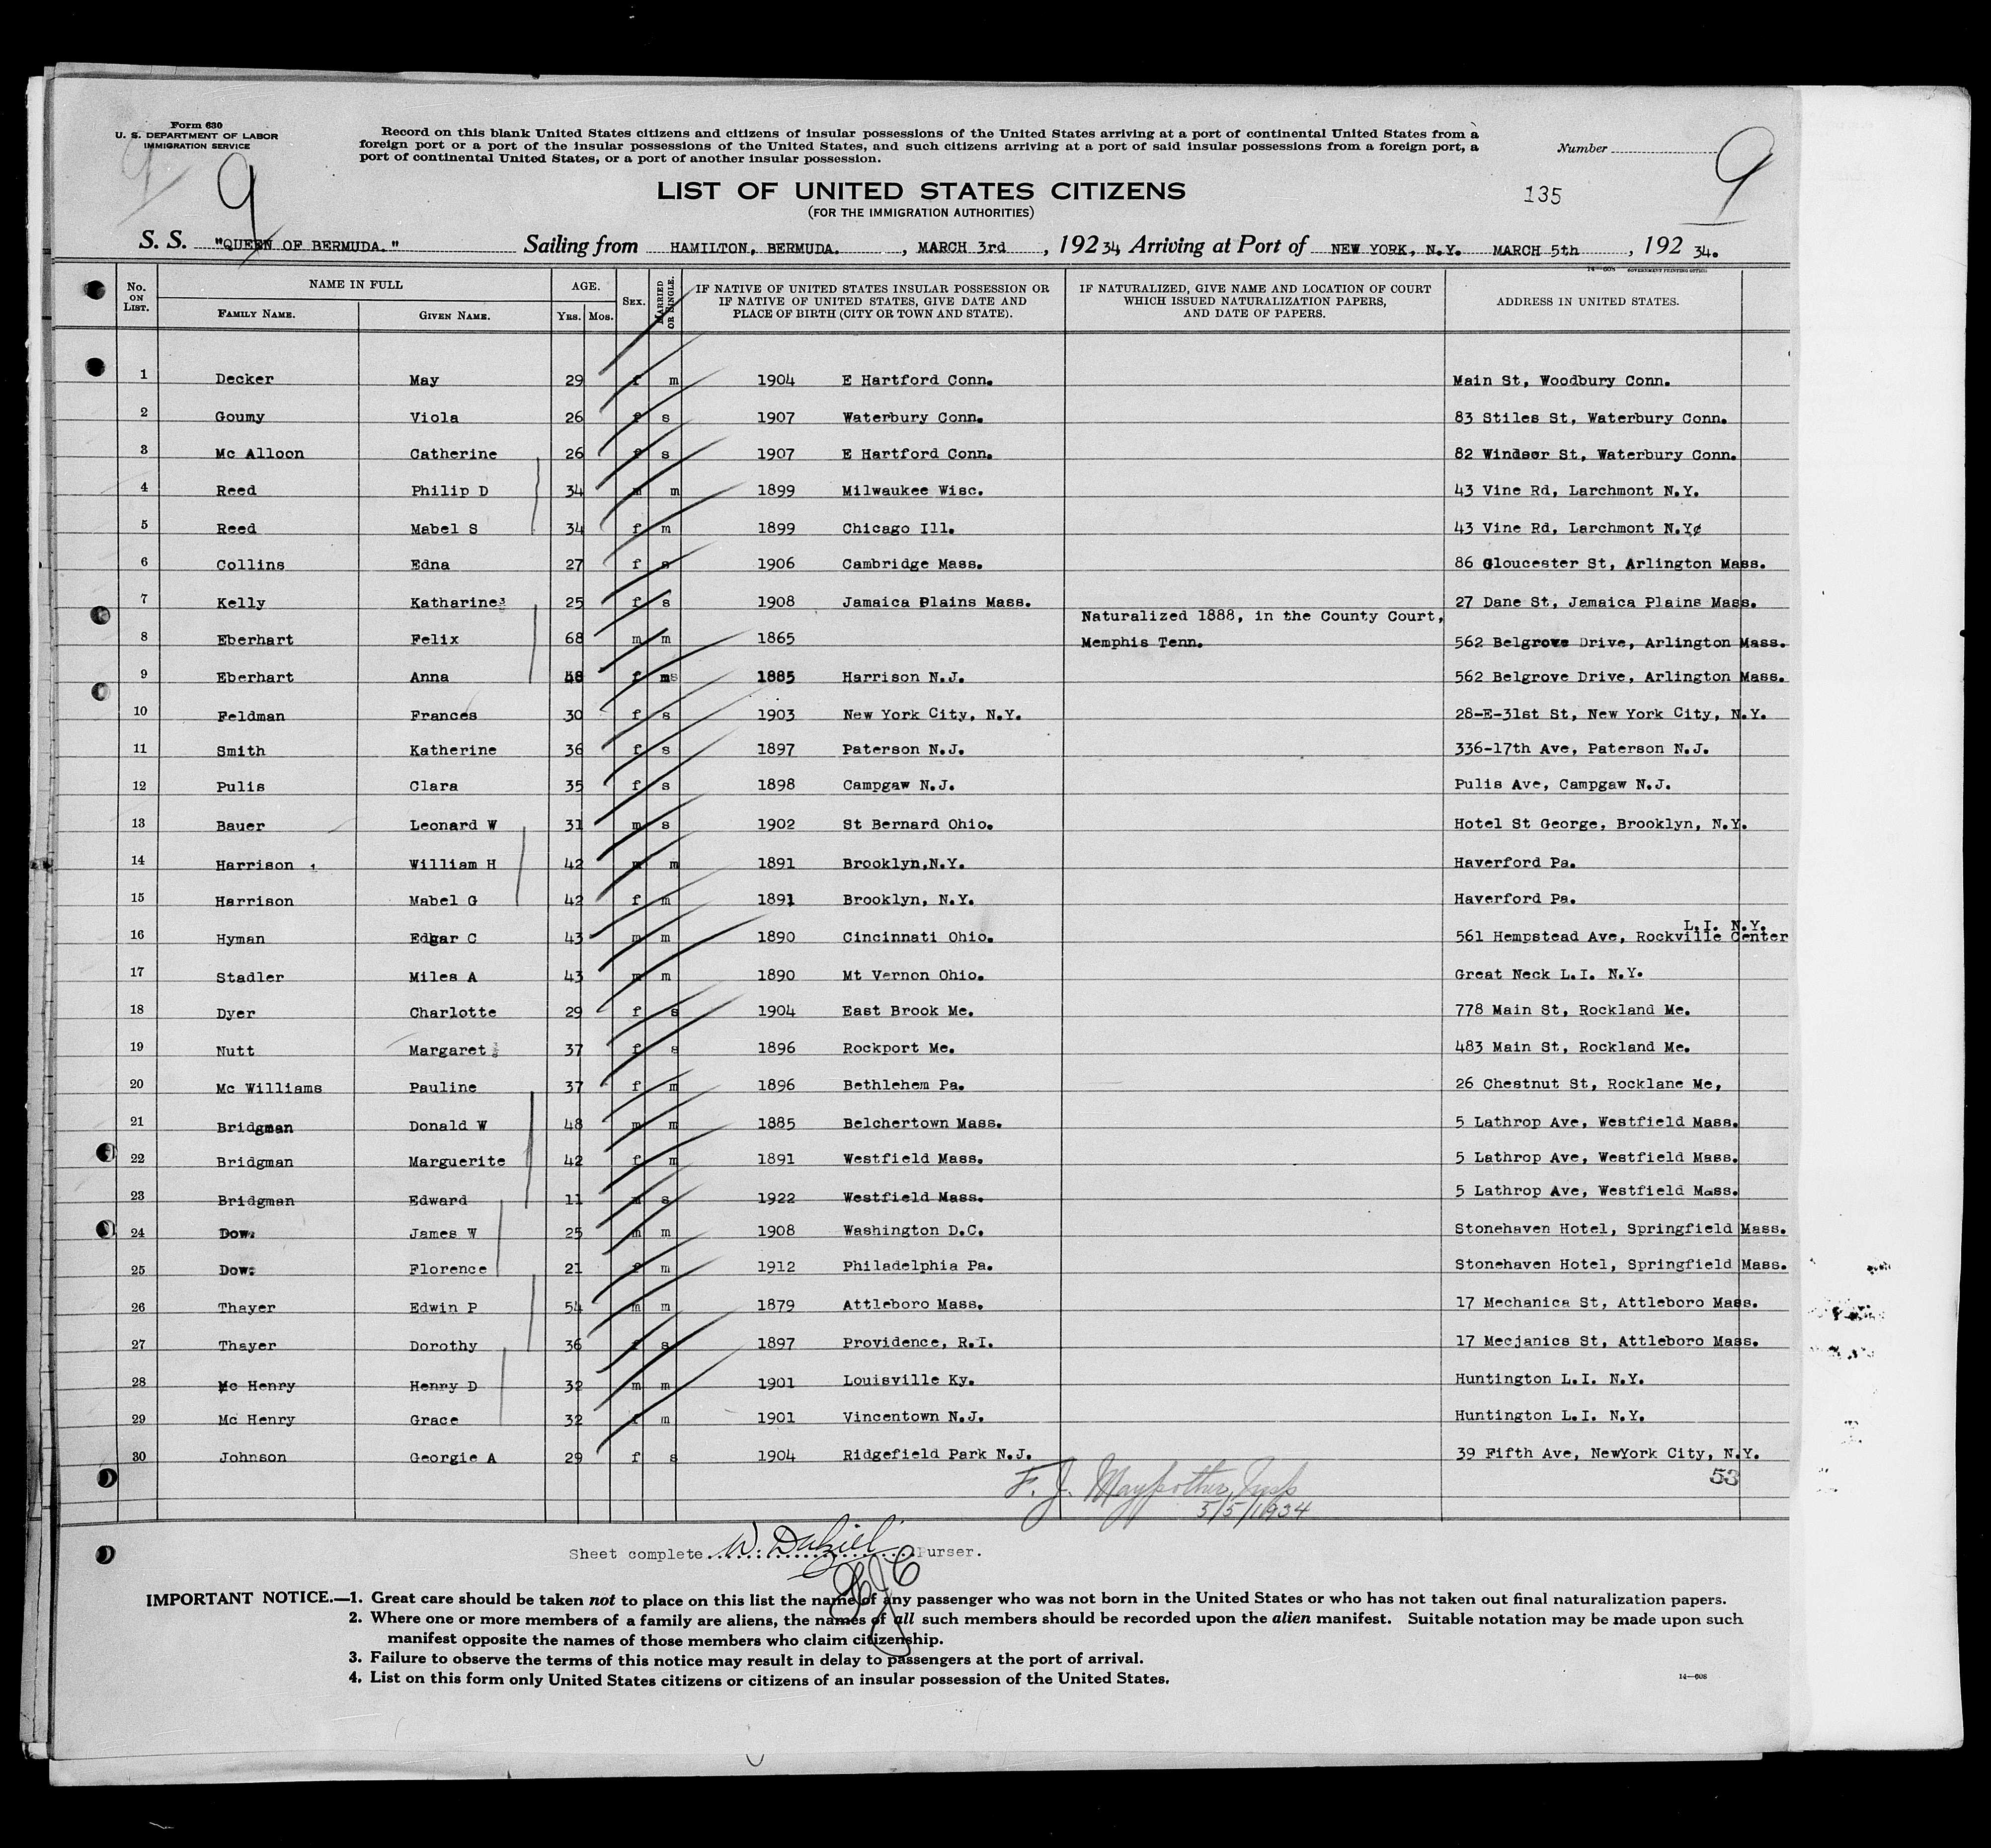 Form 630
U. S. DEPARTMENT OF LABOR
IMMIGRATION SERVICE
Record on this blank United States citizens and citizens of insular possessions of the United States arriving at a port of continental United States from a
foreign port or a port of the insular possessions of the United States, and such citizens arriving at a port of said insular possessions from a foreign port, a
port of continental United States, or a port of another insular possession.
Number 9
9
9
LIST OF UNITED STATES CITIZENS
(FOR THE IMMIGRATION AUTHORITIES)
135
S. S. "QUEEN OF BERMUDA." Sailing from HAMILTON, BERMUDA. , MARCH 3rd , 192 34, Arriving at Port of NEW YORK, N.Y. MARCH 5th , 192 34.
14—608 GOVERNMENT PRINTING OFFICE
No. ON LIST. NAME IN FULL FAMILY NAME. GIVEN NAME. AGE. YRS. MOS. SEX. MARRIED OR SINGLE. IF NATIVE OF UNITED STATES INSULAR POSSESSION OR IF NATIVE OF UNITED STATES, GIVE DATE AND PLACE OF BIRTH (CITY OR TOWN AND STATE). IF NATURALIZED, GIVE NAME AND LOCATION OF COURT WHICH ISSUED NATURALIZATION PAPERS, AND DATE OF PAPERS. ADDRESS IN UNITED STATES.
1 Decker May 29 f m 1904 E Hartford Conn. Main St, Woodbury Conn.
2 Goumy Viola 26 f s 1907 Waterbury Conn. 83 Stiles St, Waterbury Conn.
3 Mc Alloon Catherine 26 f s 1907 E Hartford Conn. 82 Windsor St, Waterbury Conn.
4 Reed Philip D 34 m m 1899 Milwaukee Wisc. 43 Vine Rd, Larchmont N.Y.
5 Reed Mabel S 34 f m 1899 Chicago Ill. 43 Vine Rd, Larchmont N.Y.
6 Collins Edna 27 f s 1906 Cambridge Mass. 86 Gloucester St, Arlington Mass.
7 Kelly Katharine 25 f s 1908 Jamaica Plains Mass. 27 Dane St, Jamaica Plains Mass.
8 Eberhart Felix 68 m m 1865 Naturalized 1888, in the County Court, Memphis Tenn. 562 Belgrove Drive, Arlington Mass.
9 Eberhart Anna 48 f m 1885 Harrison N.J. 562 Belgrove Drive, Arlington Mass.
10 Feldman Frances 30 f s 1903 New York City, N.Y. 28-E-31st St, New York City, N.Y.
11 Smith Katherine 36 f s 1897 Paterson N.J. 336-17th Ave, Paterson N.J.
12 Pulis Clara 35 f s 1898 Campgaw N.J. Pulis Ave, Campgaw N.J.
13 Bauer Leonard W 31 m s 1902 St Bernard Ohio. Hotel St George, Brooklyn, N.Y.
14 Harrison William H 42 m m 1891 Brooklyn,N.Y. Haverford Pa.
15 Harrison Mabel G 42 f m 1891 Brooklyn, N.Y. Haverford Pa.
16 Hyman Edgar C 43 m m 1890 Cincinnati Ohio. 561 Hempstead Ave, Rockville Center L.I. N.Y.
17 Stadler Miles A 43 m m 1890 Mt Vernon Ohio. Great Neck L.I. N.Y.
18 Dyer Charlotte 29 f s 1904 East Brook Me. 778 Main St, Rockland Me.
19 Nutt Margaret 37 f s 1896 Rockport Me. 483 Main St, Rockland Me.
20 Mc Williams Pauline 37 f m 1896 Bethlehem Pa. 26 Chestnut St, Rocklane Me,
21 Bridgman Donald W 48 m m 1885 Belchertown Mass. 5 Lathrop Ave, Westfield Mass.
22 Bridgman Marguerite 42 f m 1891 Westfield Mass. 5 Lathrop Ave, Westfield Mass.
23 Bridgman Edward 11 m s 1922 Westfield Mass. 5 Lathrop Ave, Westfield Mass.
24 Dow. James W 25 m m 1908 Washington D.C. Stonehaven Hotel, Springfield Mass.
25 Dow. Florence 21 f m 1912 Philadelphia Pa. Stonehaven Hotel, Springfield Mass.
26 Thayer Edwin P 54 m m 1879 Attleboro Mass. 17 Mechanica St, Attleboro Mass.
27 Thayer Dorothy 36 f s 1897 Providence, R.I. 17 Mecjanics St, Attleboro Mass.
28 Mc Henry Henry D 32 m m 1901 Louisville Ky. Huntington L.I. N.Y.
29 Mc Henry Grace 32 f m 1901 Vincentown N.J. Huntington L.I. N.Y.
30 Johnson Georgie A 29 f s 1904 Ridgefield Park N.J. 39 Fifth Ave, NewYork City, N.Y.
53
F. J. Maypother, Insp
3/5/1934
Sheet complete W. Dalziel Purser.
IMPORTANT NOTICE.—1. Great care should be taken not to place on this list the name of any passenger who was not born in the United States or who has not taken out final naturalization papers.
2. Where one or more members of a family are aliens, the names of all such members should be recorded upon the alien manifest. Suitable notation may be made upon such
manifest opposite the names of those members who claim citizenship.
3. Failure to observe the terms of this notice may result in delay to passengers at the port of arrival.
4. List on this form only United States citizens or citizens of an insular possession of the United States.
14—608